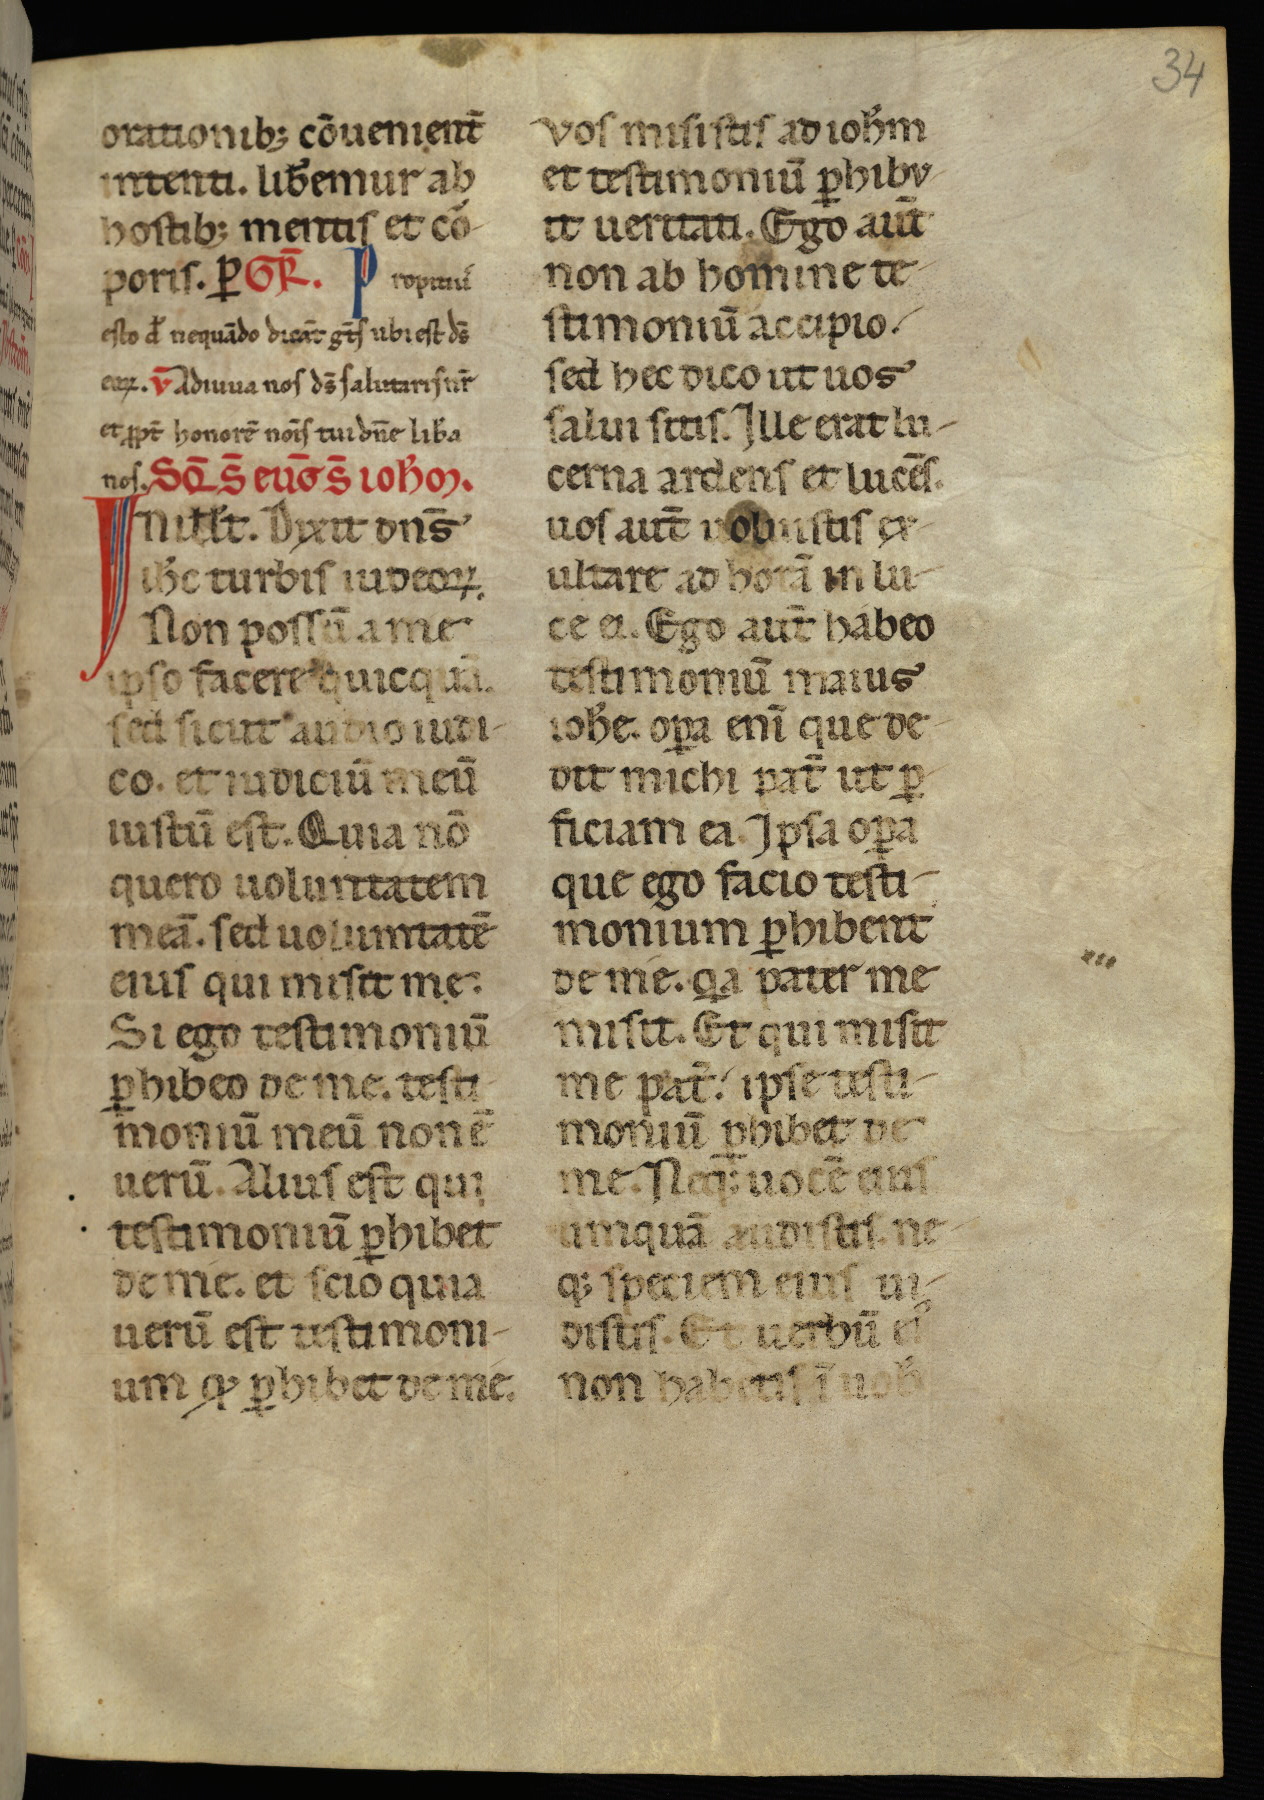 34
orationib; cōuenient̄
intenti. lib̄emur ab
hostib; mentis et cō-
poris. ꝑ GR̄. Propitiū
esto d̄s nequādo dicāt gēt̄s ubi est ds̄
eoꝝ. v̄ Adiuua nos ds̄ salutaris nr̄
et ꝓpt̄ honorē nois̄ tui dn̄e lib̄a
nos. SQ̄ S̄ eūḡ S̄ ioh̄m.
IN ill̄ t̄. Dixit dns̄
ih̄c turbis iudeoꝝ.
Non possū a me
ipso facere quicquā.
sed sicut audio iudi-
co. et iudiciū meū
iustū est. Quia nō
quero uoluntatem
meā. sed uoluntatē
eius qui misit me.
Si ego testimoniū
ꝑhibeo de me. testi-
moniū meū non ē
uerū. Alius est qui
testimoniū ꝑhibet
de me. et scio quia
uerū est testimoni-
um qd̄ ꝑhibet de me.
vos misistis ad ioh̄m
et testimoniū ꝑhibu-
it ueritati. Ego aut̄
non ab homine te-
stimoniū accipio.
sed hec dico ut uos
salui sitis. Ille erat lu-
cerna ardens et lucēs.
uos aut̄ uoluistis ex-
ultare ad horā in lu-
ce ei. Ego aut̄ habeo
testimoniū maius
ioh̄e. oꝑa eni̅ que de-
dit michi pat̄ ut ꝑ-
ficiam ea. Ipsa oꝑa
que ego facio testi-
monium ꝑhibent
de me. qa pater me
misit. Et qui misit
me pat̄. ipse testi-
moniū ꝑhibet de
me. Neq; uocē eius
umquā audistis. ne-
q; speciem eius ui-
distis. Et uerbū ei9
non habetis ī uob̄